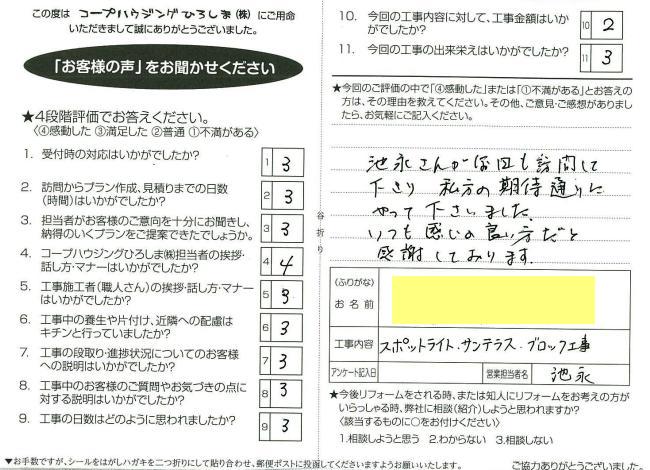 この度は コープハウジングひろしま(株) にご用命
いただきまして誠にありがとうございました。
「お客様の声」をお聞かせください
★4段階評価でお答えください。
〈④感動した ③満足した ②普通 ①不満がある〉
1. 受付時の対応はいかがでしたか? 1 3
2. 訪問からプラン作成、見積りまでの日数
(時間)はいかがでしたか? 2 3
3. 担当者がお客様のご意向を十分にお聞きし、
納得のいくプランをご提案できたでしょうか。 3 3
4. コープハウジングひろしま㈱担当者の挨拶・
話し方・マナーはいかがでしたか? 4 4
5. 工事施工者(職人さん)の挨拶・話し方・マナー
はいかがでしたか? 5 3
6. 工事中の養生や片付け、近隣への配慮は
キチンと行っていましたか? 6 3
7. 工事の段取り・進捗状況についてのお客様
への説明はいかがでしたか? 7 3
8. 工事中のお客様のご質問やお気づきの点に
対する説明はいかがでしたか? 8 3
9. 工事の日数はどのように思われましたか? 9 3
▼お手数ですが、シールをはがしハガキを二つ折りにして貼り合わせ、郵便ポストに投函してくださいますようお願いいたします。
谷折り
10. 今回の工事内容に対して、工事金額はいか
がでしたか? 10 2
11. 今回の工事の出来栄えはいかがでしたか? 11 3
★今回のご評価の中で「④感動した」または「①不満がある」とお答えの
方は、その理由を教えてください。その他、ご意見・ご感想がありまし
たら、お気軽にご記入ください。
池永さんが何回も訪問して
下さり 私方の期待通りに
やって下さいました。
いつも感じの良い方だと
感謝しております。
(ふりがな)
お名前
工事内容 スポットライト・サンテラス・ブロック工事
アンケート記入日 営業担当者名 池永
★今後リフォームをされる時、または知人にリフォームをお考えの方が
いらっしゃる時、弊社に相談(紹介)しようと思われますか?
〈該当するものに○をお付けください〉
1.相談しようと思う 2.わからない 3.相談しない
ご協力ありがとうございました。